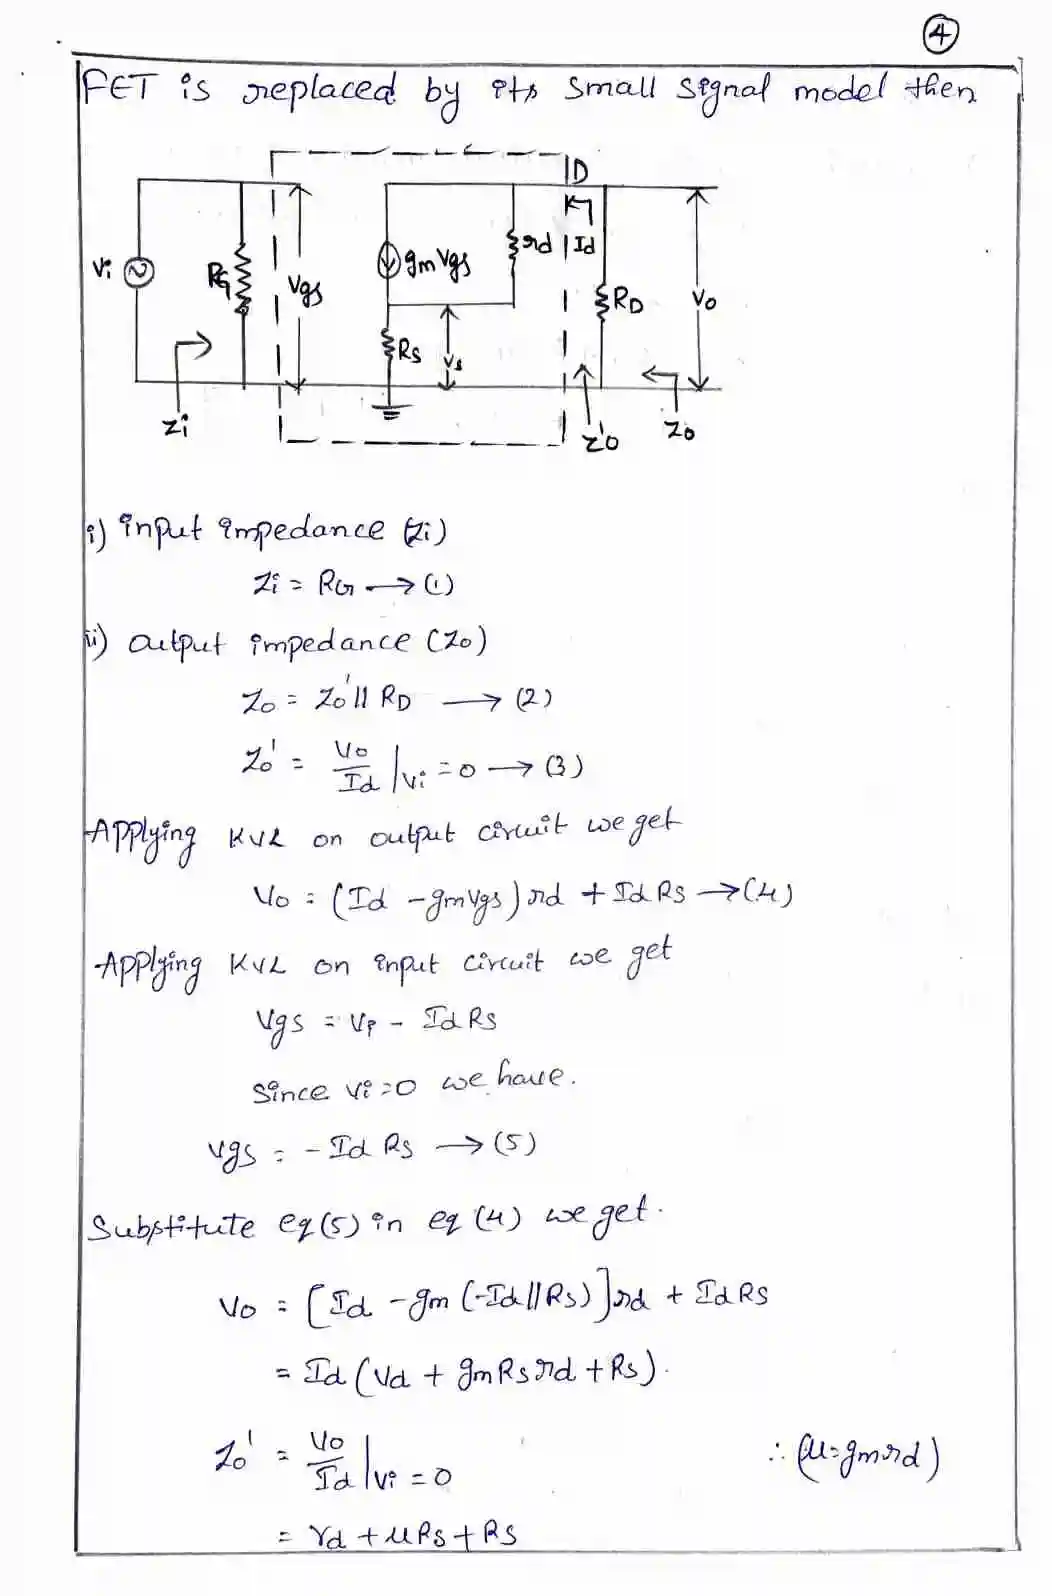 4
FET is replaced by its small signal model then
D
Vi
RG
Vgs
gmVgs
rd
Id
RD
Vo
Rs
Vs
Zi
Z'o
Zo
i) input impedance (Zi)
Zi = RG → (1)
ii) output impedance (Zo)
Zo = Zo' || RD → (2)
Zo' = Vo/Id | Vi = 0 → (3)
Applying KVL on output circuit we get
Vo = (Id - gmVgs) rd + Id Rs → (4)
Applying KVL on input circuit we get
Vgs = Vi - Id Rs
Since Vi = 0 we have.
Vgs = - Id Rs → (5)
Substitute eq (5) in eq (4) we get.
Vo = [Id - gm (-Id || Rs)] rd + Id Rs
= Id (Vd + gm Rs rd + Rs).
Zo' = Vo/Id | Vi = 0 ∴ (μ = gm rd)
= rd + μRs + Rs